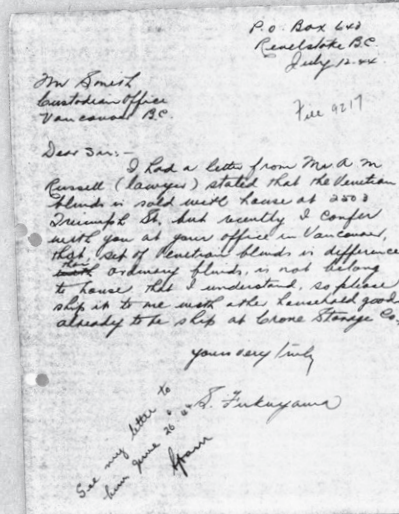 P.O. Box 642
Revelstoke B.C.
July 12. 44.
Mr Smith
Custodian Office
Vancouver B.C.
File 9217
Dear Sir:-
I had a letter from Mr. A M
Russell (lawyer) stated that the Venetian
blinds is sold with house at 2503
Triumph St, but recently I confer
with you at your office in Vancouver,
that, set of venetian blinds is difference
then ordinary blinds, is not belong
to house that I understand, so please
ship it to me with other household good
already to be ship at Crone Storage Co.
yours very truly
S. Fukuyama
See my letter to
him June 26